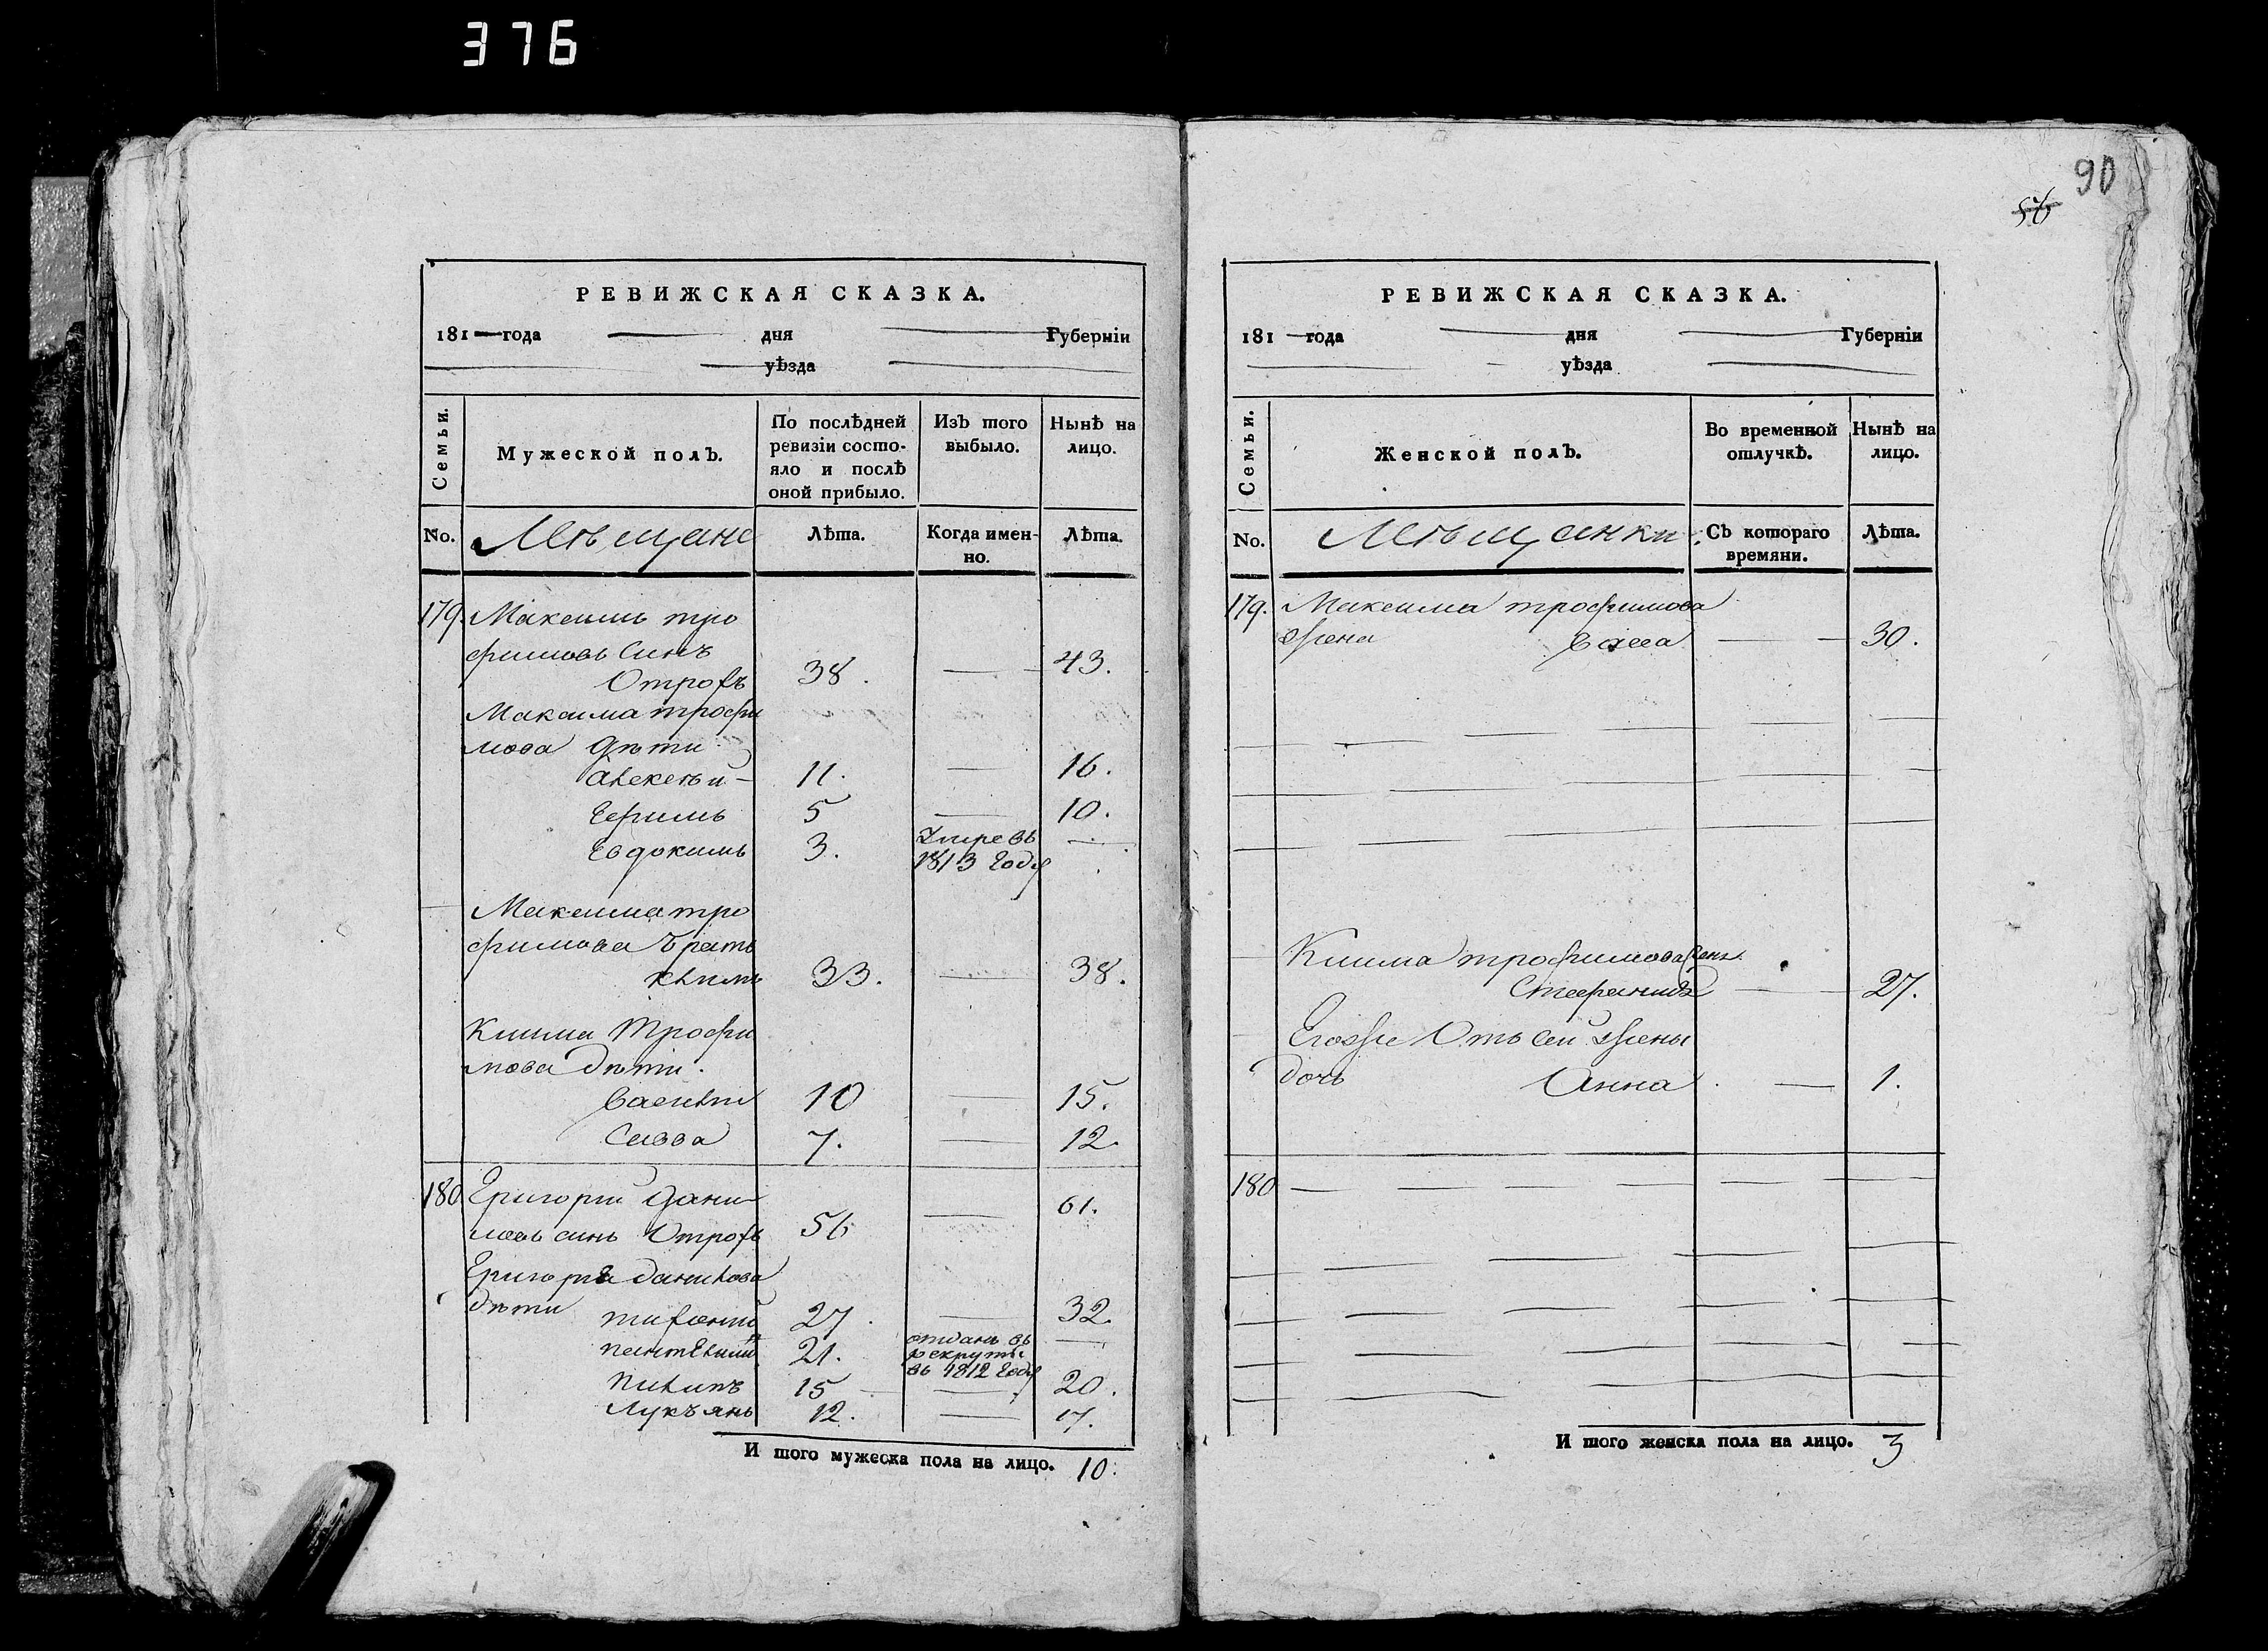 376
90
56
РЕВИЖСКАЯ СКАЗКА.
181 года дня Губерніи
уѣзда
Семьи.
Мужеской полъ.
По послѣдней ревизіи состояло и послѣ оной прибыло.
Изъ того выбыло.
Нынѣ на лицо.
No. Мѣщане Лѣта. Когда именно. Лѣта.
179. Максимъ тро
фимовъ Синъ
Отрохъ 38. 43.
Максима трофи
мова дѣти
Алексѣй 11. 16.
Ефимъ 5 10.
Евдокимъ 3. Умре въ
1813 году
Максима тро
фимова братъ
Климъ 33. 38.
Клима Трофи
мова дѣти.
Василій 10 15.
Савва 7. 12.
180 Григорій Дани
ловъ синъ Отрохъ 56 61.
Григорія данилова
дѣти
27. 32.
Пантелимонъ 21. отданъ въ
рекруты
въ 1812 году
Пилипъ 15 20.
Лукъянъ 12. 17.
И того мужеска пола на лицо. 10.
РЕВИЖСКАЯ СКАЗКА.
181 года дня Губерніи
уѣзда
Семьи.
Женской полъ.
Во временной отлучкѣ.
Нынѣ на лицо.
No. Мѣщанки Съ котораго времяни. Лѣта.
179. Максима трофимова
жена Васса 30.
Клима трофимова жена
Стефанида 27.
Егожъ Отъ сей жены
дочь Анна 1.
180
И того женска пола на лицо. 3